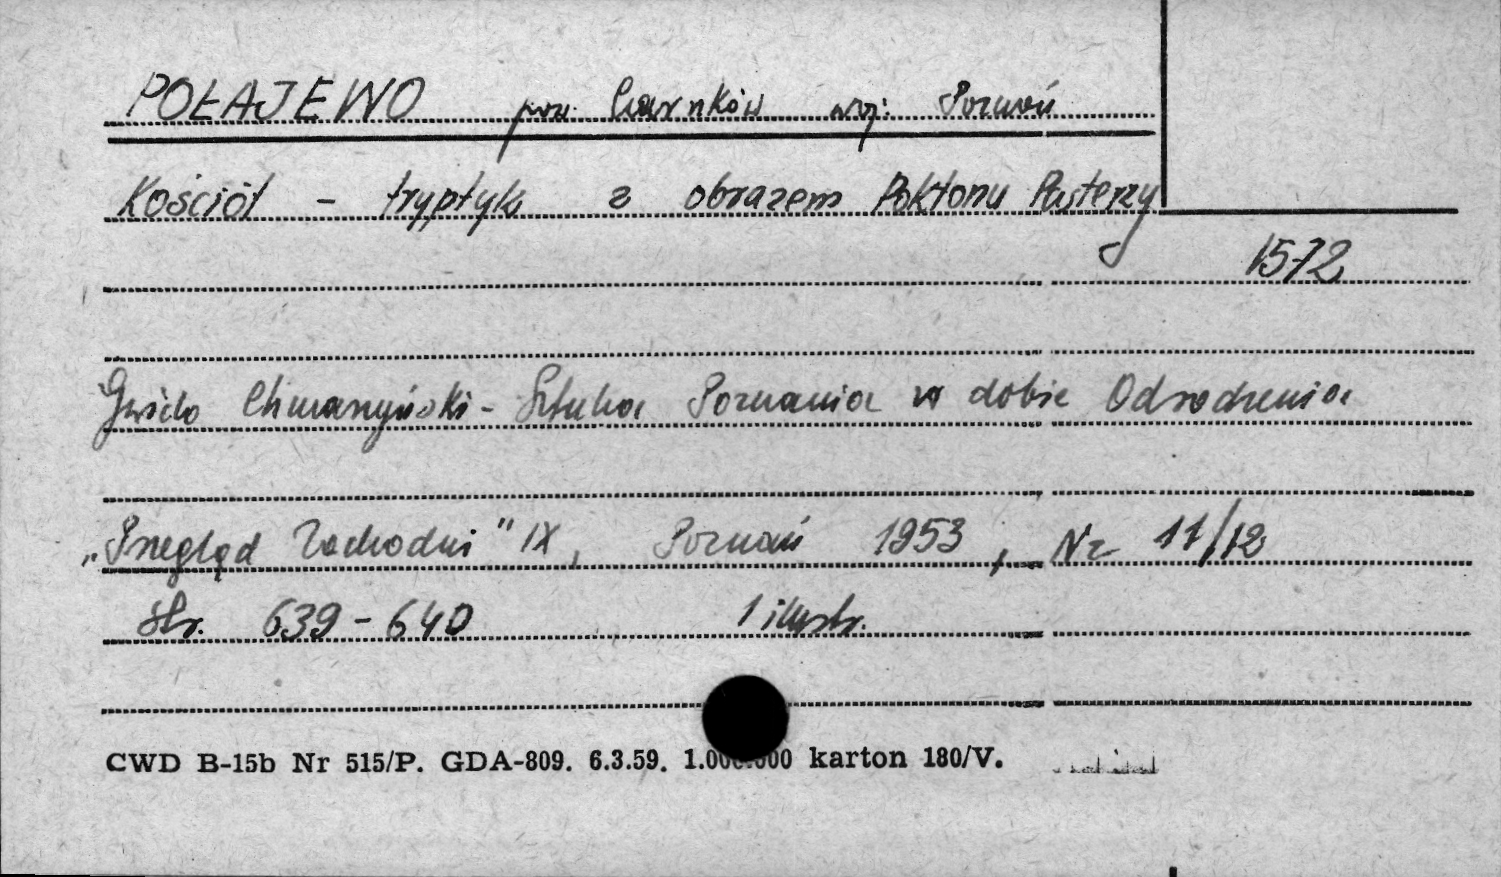 POŁAJEWO pow. Czarnków woj: Poznań
Kościół - tryptyk z obrazem Pokłonu Pasterzy
1572
Gwido Chmarzyński - Sztuka Poznania w dobie Odrodzenia
„Przegląd Zachodni" IX, Poznań 1953, Nr 11/12
str. 639-640 1 ilustr.
CWD B-15b Nr 515/P. GDA-809. 6.3.59. 1.000.000 karton 180/V.